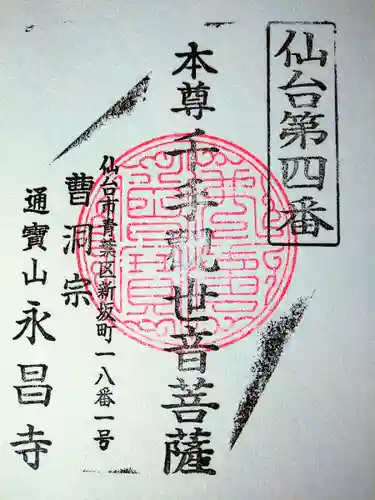 仙台第四番
本尊
千手観世音菩薩
仙台市青葉区新坂町一八番一号
曹洞宗
通寶山永昌寺